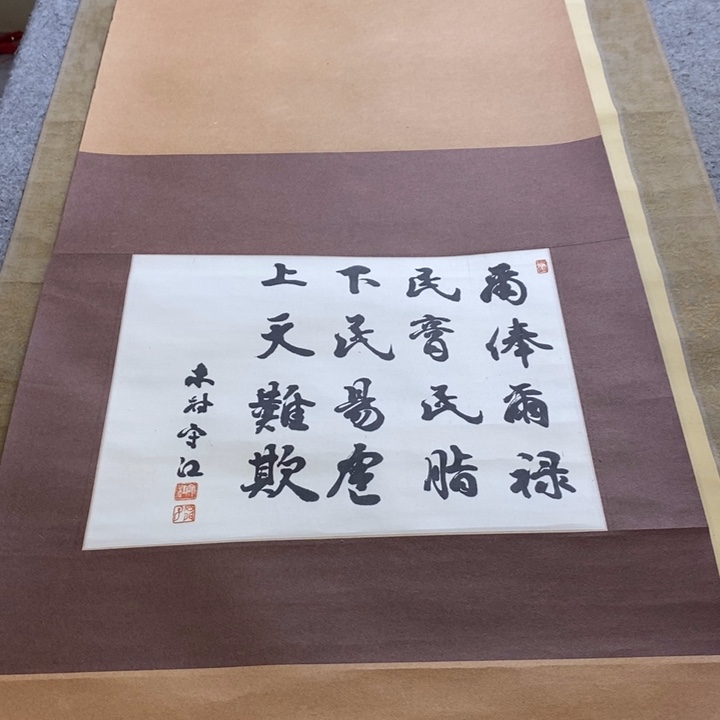 爾俸爾禄
民膏民脂
下民易虐
上天難欺
木村守江